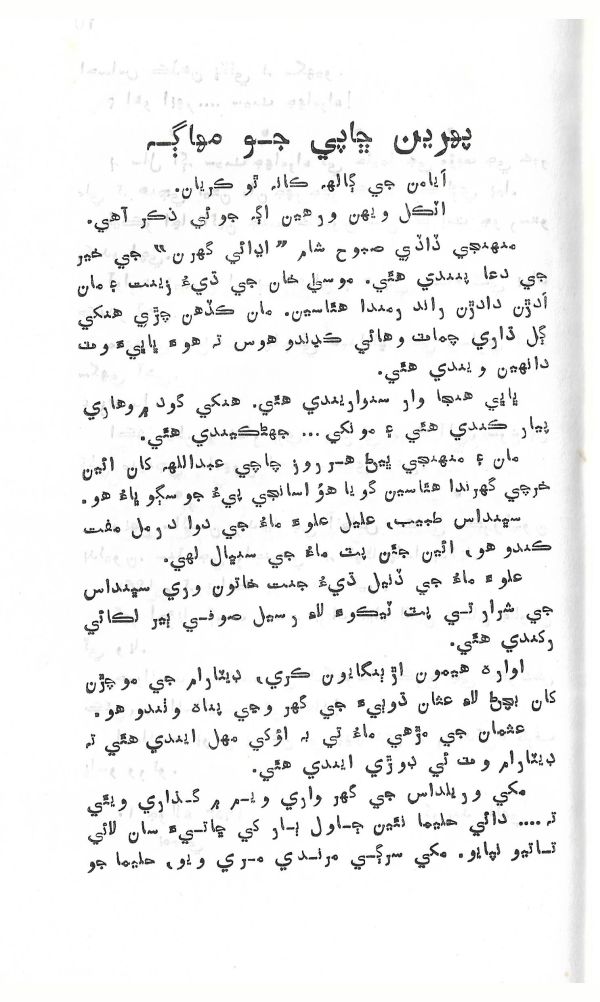 پهرين ڇاپي جـو مهاڳـ
آيامن جي ڳالهه ڪانہ ٿو ڪريان.
اٽڪل ويهن ورهين اڳہ جو ئي ذڪر آهي.
منهنجي ڏاڏي صبوح شام ”اڍائي گهرن“ جي خير
جي دعا پنندي هئي. موسيٰ خان جي ڌيءُ زينت ۽ مان
اَدڙن دادڙن راند رمندا هئاسين. مان ڪڏهن چڙي هنکي
ڳل ڌاري چمات وهائي ڪڍندو هوس تہ هوءَ ڀاڀيءَ وٽ
دانهين ويندي هئي.
ڀاڀي هنجا وار سنواريندي هئي. هنکي گود ۾ وهاري
پيار ڪندي هئي ۽ مونکي... جهڻڪيندي هئي.
مان ۽ منهنجي ڀيڻ هـر روز چاچي عبدالله کان ائين
خرچي گهرندا هئاسين گويا هوُ اسانجي پيءُ جو سڳو ڀاءُ هو.
سپنداس طبيب، عليل علوءَ ماءُ جي دوا درمل مفت
ڪندو هو، ائين جڻن پٽ ماءُ جي سنڀال لهي.
علوءَ ماءُ جي ڏنيل ڌيءُ جنت خاتون وري سپنداس
جي شرارتـي پٽ ٽيڪوءَ لاءِ رسيل صوفـي ٻير لڪائي
رکندي هئي.
اواره هيمون اڙٻنگايون ڪري، ڊيٽارام جي موچڙن
کان بچڻ لاءِ عثمان ڌوٻيءَ جي گهر وڃي پناه وٺندو هو.
عثمان جي مڙهي ماءُ تي بہ اؤکي مهل ايندي هئي تہ
ڊيٽارام وٽ ئي ڊوڙي ايندي هئي.
مکي وريلداس جي گهر واري ويـم ۾ گـذاري ويئي
تہ.... دائي حليما نئين ڄـاول ٻـار کي ڇاتـيءَ سان لائي
تـاتيو نپايو. مکي سرڳـي مرنـدي مـري ويو، حليما جو